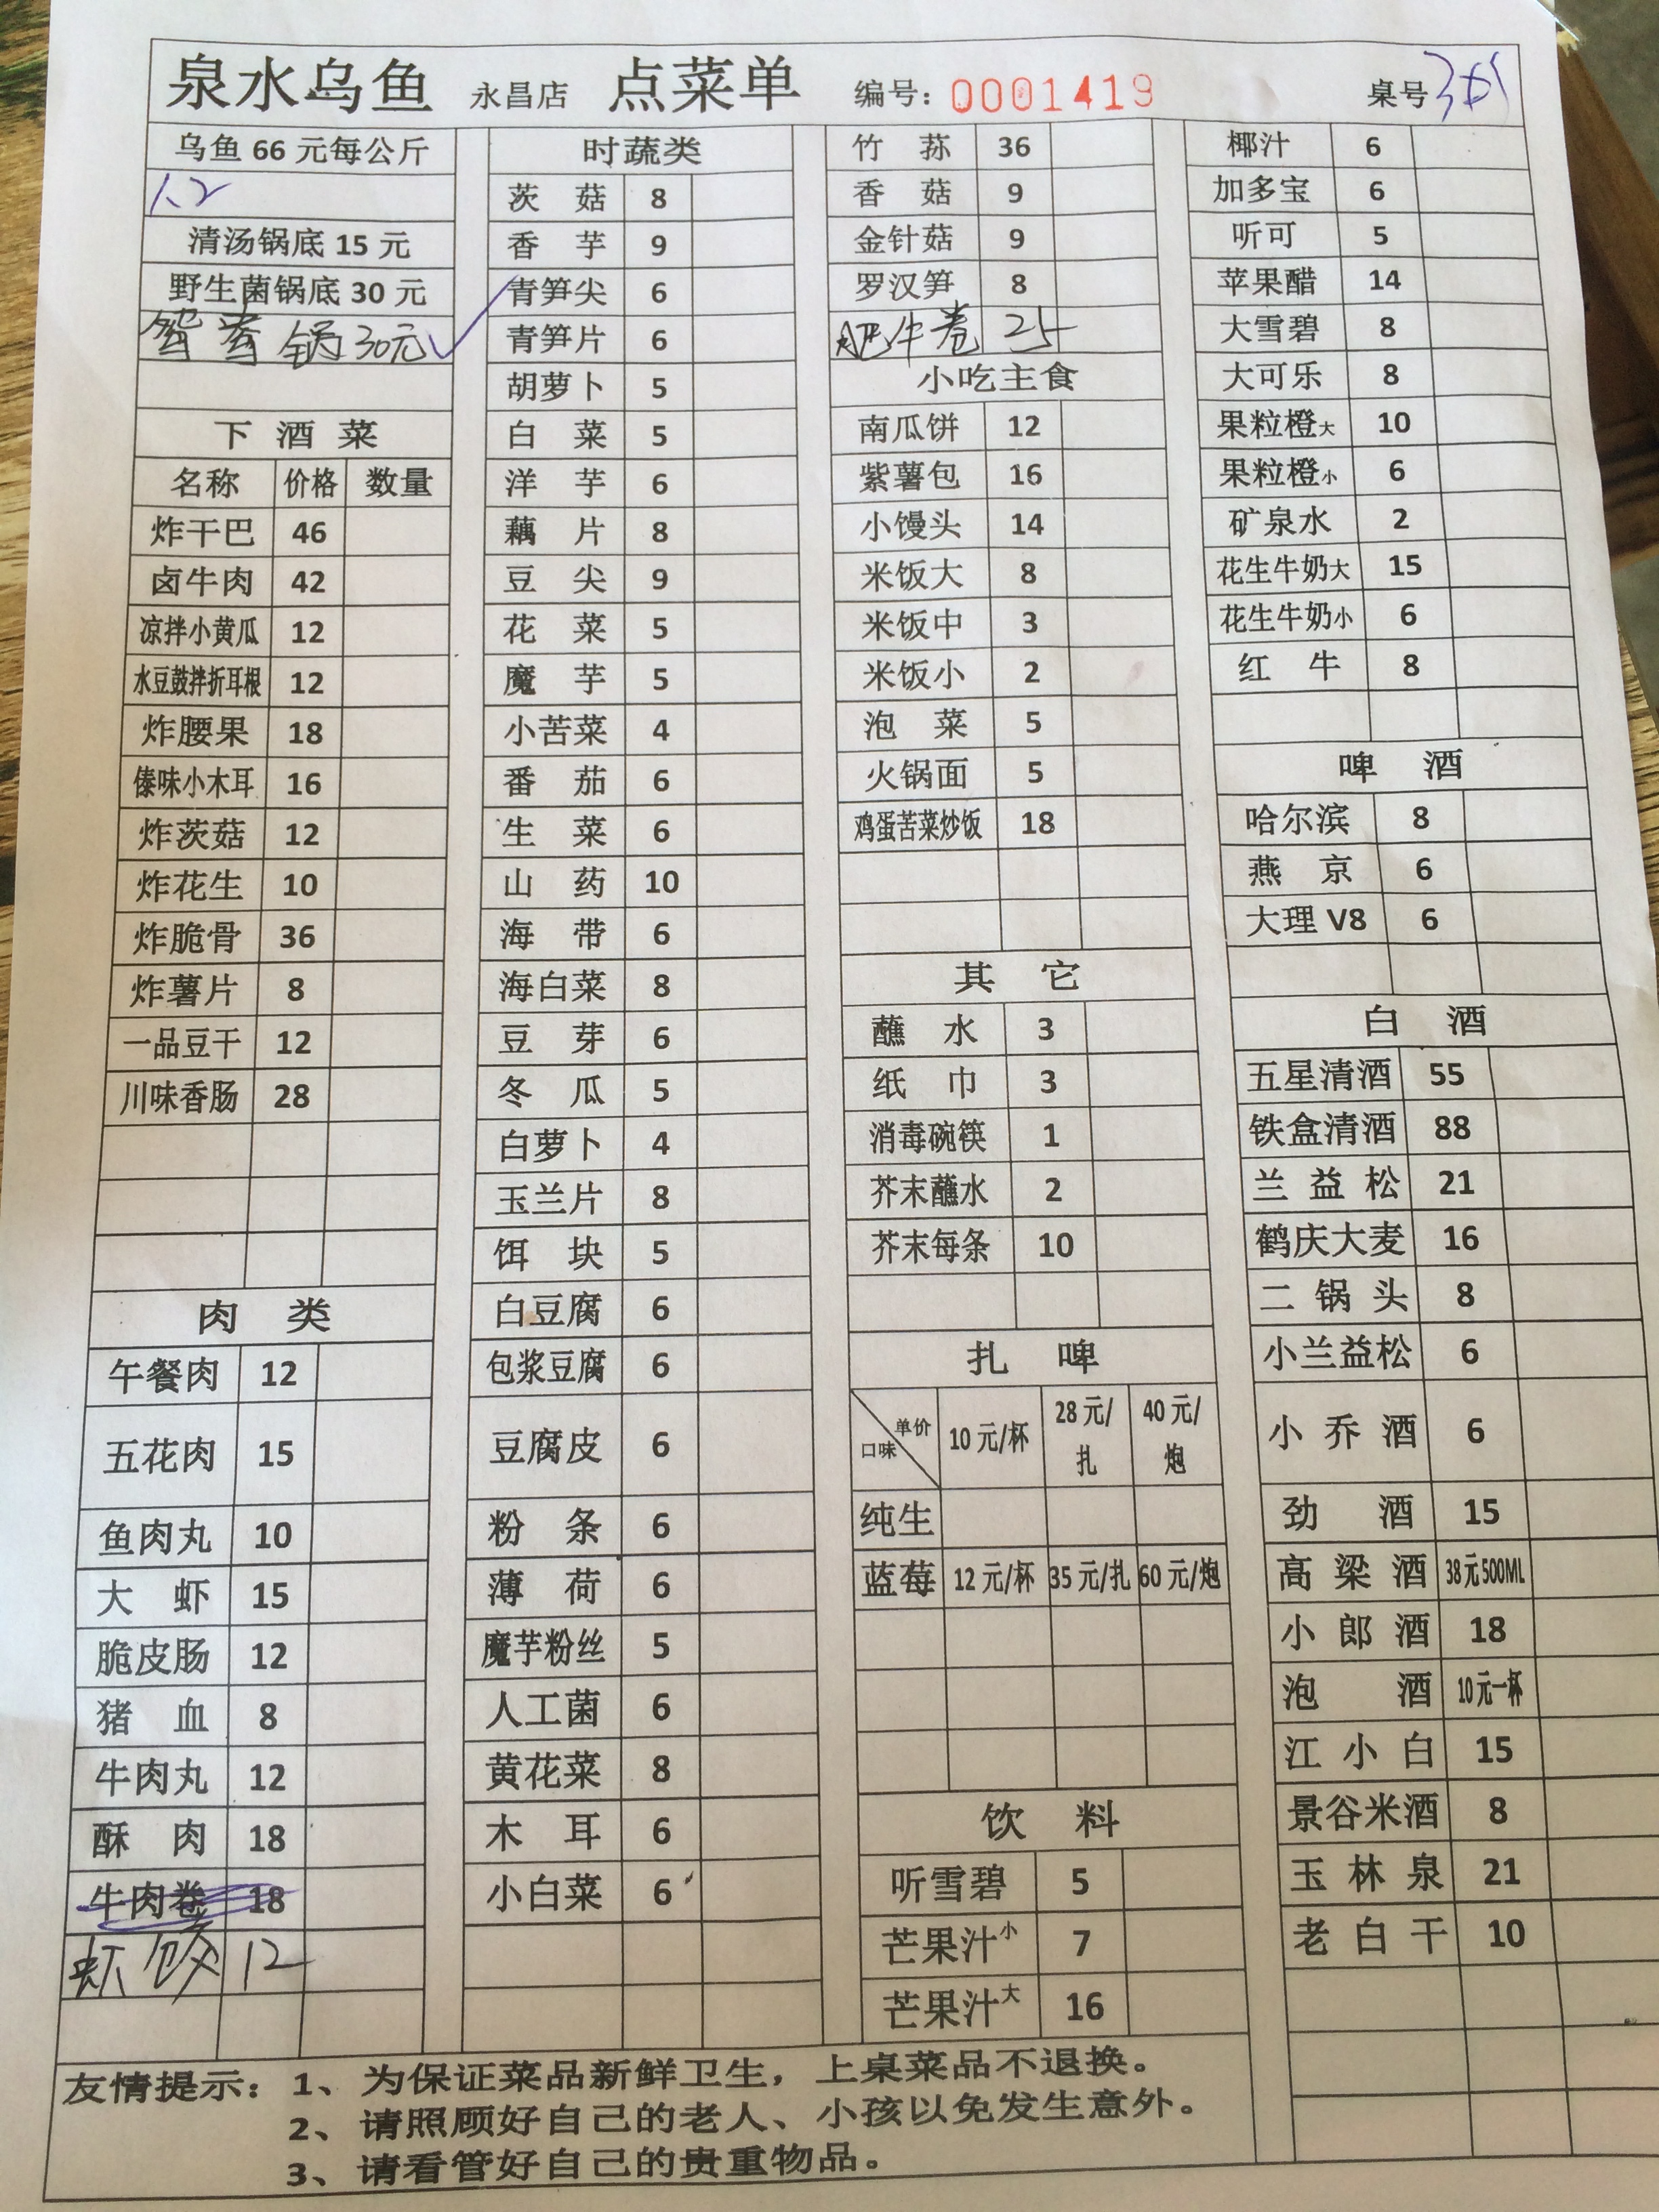 泉水乌鱼 永昌店 点菜单 编号：0001419 桌号
乌鱼 66 元每公斤
1.2
清汤锅底 15 元
野生菌锅底 30 元
鸳鸯锅30元✓
下酒菜
名称 价格 数量
炸干巴 46
卤牛肉 42
凉拌小黄瓜 12
水豆鼓拌折耳根 12
炸腰果 18
傣味小木耳 16
炸茨菇 12
炸花生 10
炸脆骨 36
炸薯片 8
一品豆干 12
川味香肠 28
肉类
午餐肉 12
五花肉 15
鱼肉丸 10
大虾 15
脆皮肠 12
猪血 8
牛肉丸 12
酥肉 18
牛肉卷 18
虾饺 12
时蔬类
茨菇 8
香芋 9
青笋尖 6
青笋片 6
胡萝卜 5
白菜 5
洋芋 6
藕片 8
豆尖 9
花菜 5
魔芋 5
小苦菜 4
番茄 6
生菜 6
山药 10
海带 6
海白菜 8
豆芽 6
冬瓜 5
白萝卜 4
玉兰片 8
饵块 5
白豆腐 6
包浆豆腐 6
豆腐皮 6
粉条 6
薄荷 6
魔芋粉丝 5
人工菌 6
黄花菜 8
木耳 6
小白菜 6
竹荪 36
香菇 9
金针菇 9
罗汉笋 8
肥牛卷 25
小吃主食
南瓜饼 12
紫薯包 16
小馒头 14
米饭大 8
米饭中 3
米饭小 2
泡菜 5
火锅面 5
鸡蛋苦菜炒饭 18
其它
蘸水 3
纸巾 3
消毒碗筷 1
芥末蘸水 2
芥末每条 10
扎啤
单价 口味 10 元/杯 28 元/扎 40 元/炮
纯生
蓝莓 12 元/杯 35 元/扎 60 元/炮
饮料
听雪碧 5
芒果汁小 7
芒果汁大 16
椰汁 6
加多宝 6
听可 5
苹果醋 14
大雪碧 8
大可乐 8
果粒橙大 10
果粒橙小 6
矿泉水 2
花生牛奶大 15
花生牛奶小 6
红牛 8
啤酒
哈尔滨 8
燕京 6
大理 V8 6
白酒
五星清酒 55
铁盒清酒 88
兰益松 21
鹤庆大麦 16
二锅头 8
小兰益松 6
小乔酒 6
劲酒 15
高梁酒 38元500ML
小郎酒 18
泡酒 10元一杯
江小白 15
景谷米酒 8
玉林泉 21
老白干 10
友情提示：1、为保证菜品新鲜卫生，上桌菜品不退换。
2、请照顾好自己的老人、小孩以免发生意外。
3、请看管好自己的贵重物品。